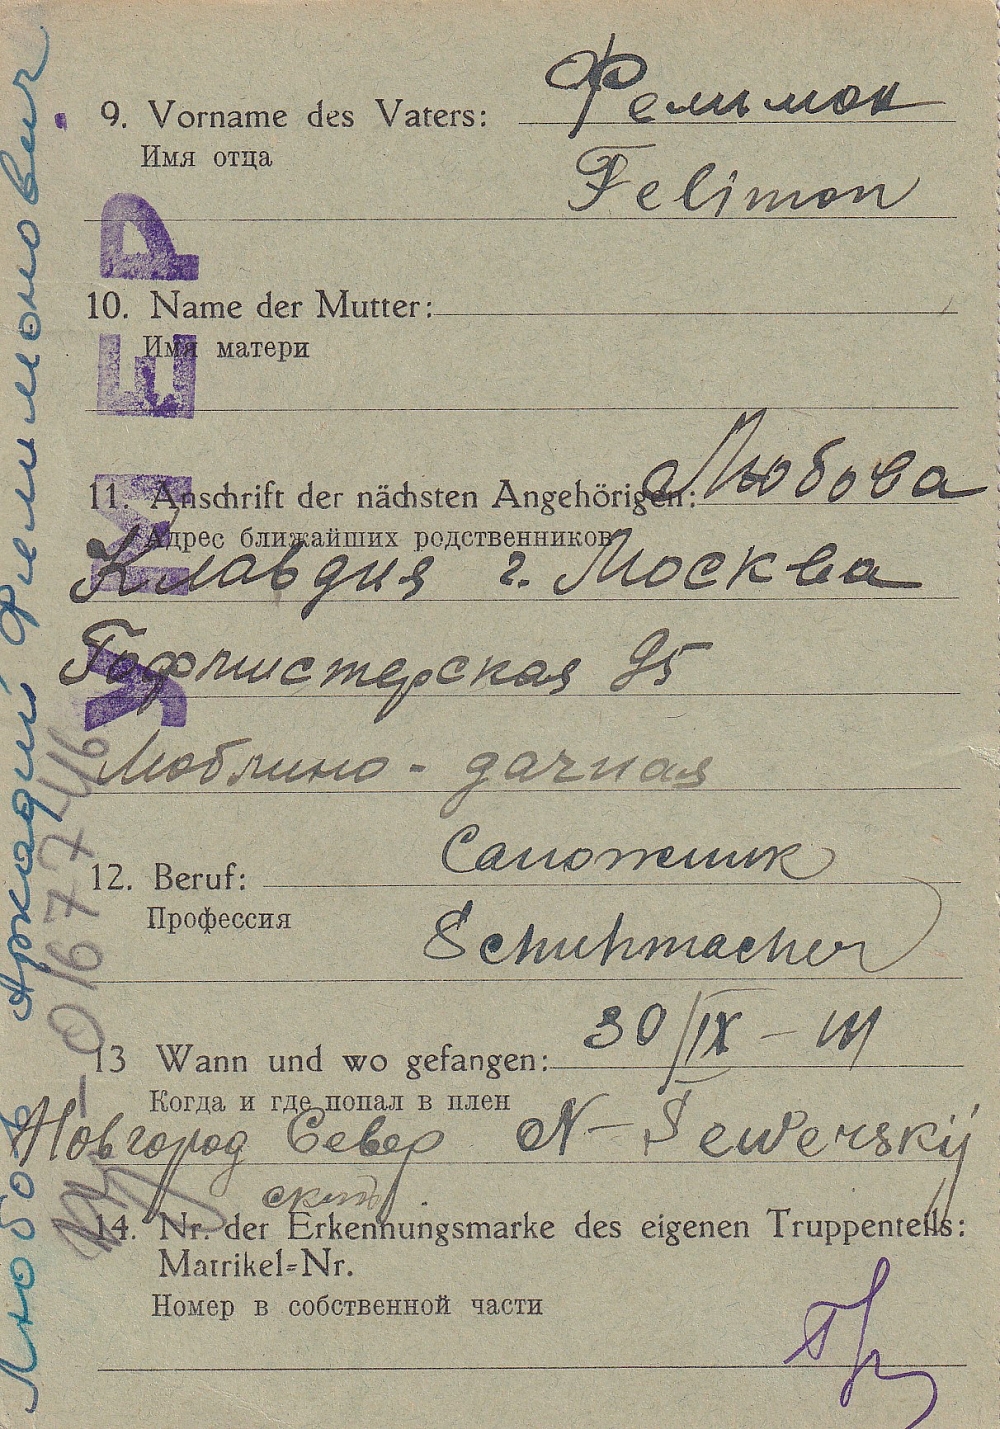 9. Vorname des Vaters: Фелимон
Имя отца
Felimon
10. Name der Mutter:
Имя матери
11. Anschrift der nächsten Angehörigen: Любова
Адрес ближайших родственников
Клавдия г. Москва
95
Люблино - дачная
12. Beruf: Сапожник
Профессия
Schuhmacher
13 Wann und wo gefangen: 30/IX - 41
Когда и где попал в плен
Новгород Север N-Sewerskij
ский
14. Nr. der Erkennungsmarke des eigenen Truppenteils:
Matrikel-Nr.
Номер в собственной части
Любов Аркадий Филимонович
УМЕР